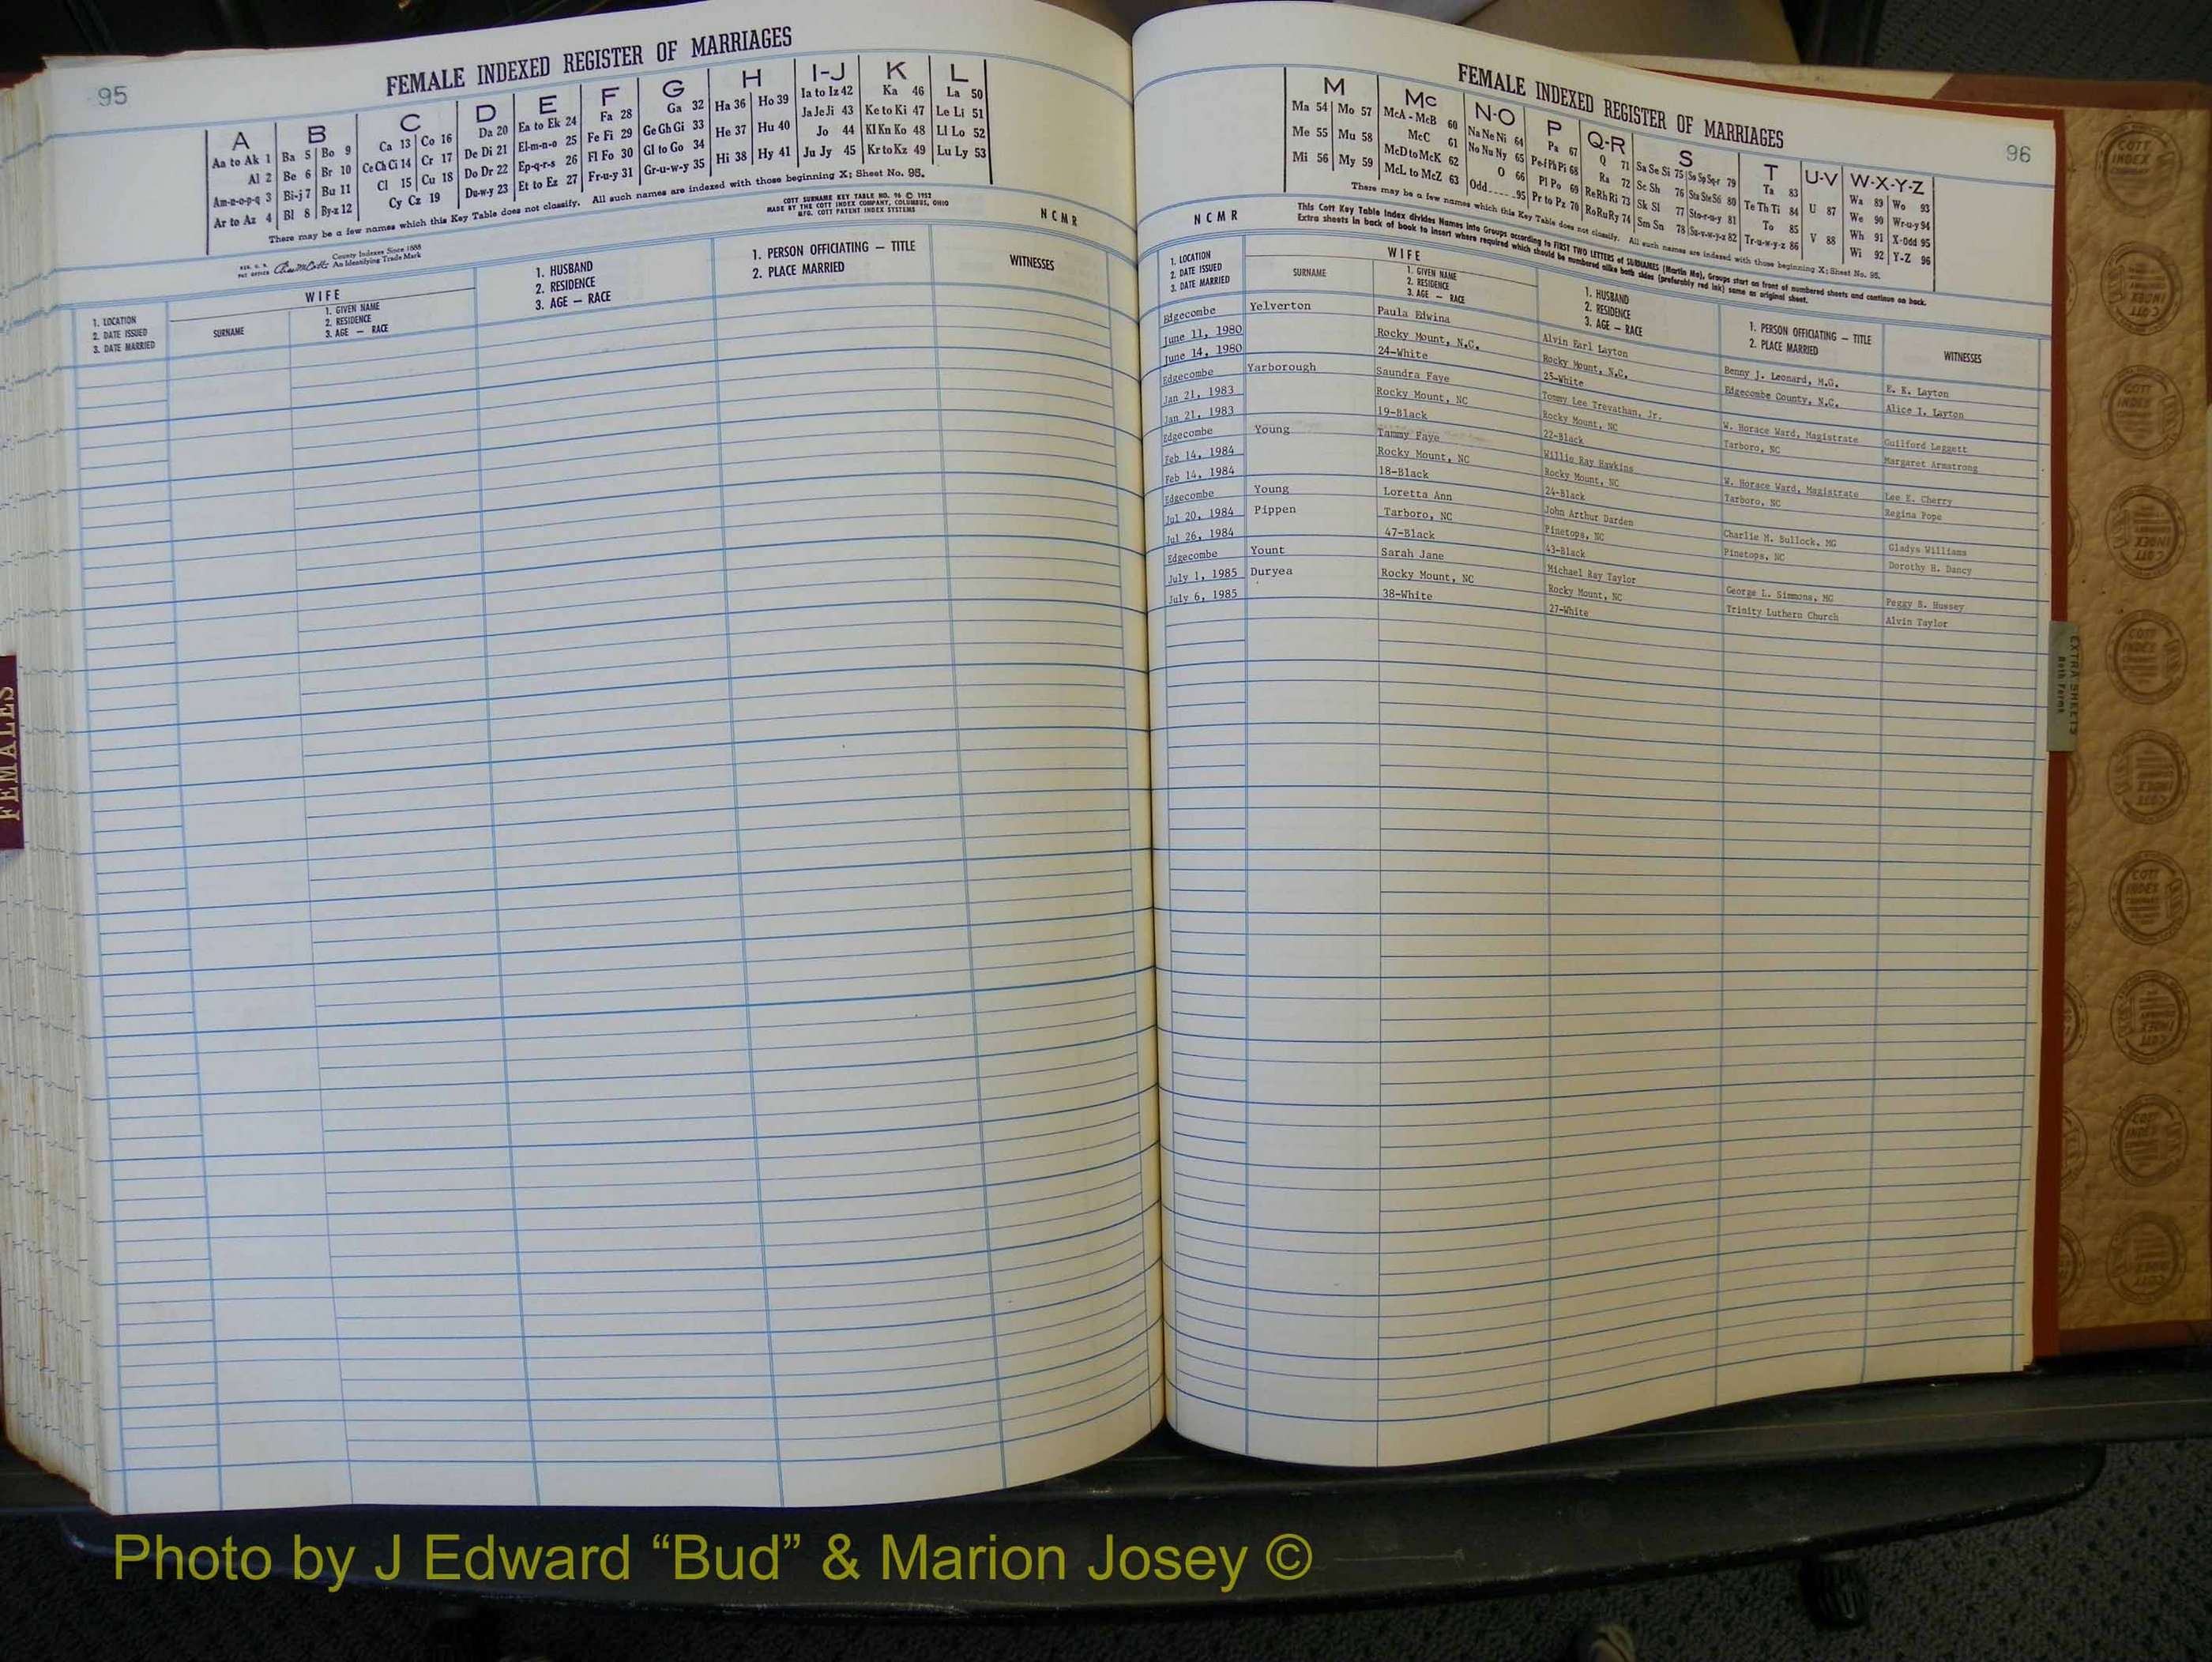 95
FEMALE INDEXED REGISTER OF MARRIAGES
A B C D E F G H I-J K L
Aa to Ak 1 Ba 5 Bo 9 Ca 13 Co 16 Da 20 Ea to Ek 24 Fa 28 Ga 32 Ha 36 Ho 39 Ia to Iz 42 Ka 46 La 50
Al 2 Be 6 Br 10 Ce Ch Ci 14 Cr 17 De Di 21 El-m-n-o 25 Fe Fi 29 Ge Gh Gi 33 He 37 Hu 40 Ja Je Ji 43 Ke to Ki 47 Le Li 51
Am-n-o-p-q 3 Bi-j 7 Bu 11 Cl 15 Cu 18 Do Dr 22 Ep-q-r-s 26 Fl Fo 30 Gl to Go 34 Hi 38 Hy 41 Jo 44 Kl Kn Ko 48 Ll Lo 52
Ar to Az 4 Bl 8 By-z 12 Cy Cz 19 Du-w-y 23 Et to Ez 27 Fr-u-y 31 Gr-u-w-y 35 Ju Jy 45 Kr to Kz 49 Lu Ly 53
There may be a few names which this Key Table does not classify. All such names are indexed with those beginning X; Sheet No. 95.
County Indexes Since 1888
An Identifying Trade Mark
COTT SURNAME KEY TABLE NO. 96 © 1952
MADE BY THE COTT INDEX COMPANY, COLUMBUS, OHIO
MFG. COTT PATENT INDEX SYSTEMS
N C M R
1. LOCATION
2. DATE ISSUED
3. DATE MARRIED
WIFE
SURNAME
1. GIVEN NAME
2. RESIDENCE
3. AGE — RACE
1. HUSBAND
2. RESIDENCE
3. AGE — RACE
1. PERSON OFFICIATING — TITLE
2. PLACE MARRIED
WITNESSES
FEMALES
FEMALE INDEXED REGISTER OF MARRIAGES
96
M Mc N-O P Q-R S T U-V W-X-Y-Z
Ma 54 Mo 57 McA - McB 60 Na Ne Ni 64 Pa 67 Q 71 Sa Se Si 75 So Sp Sq-r 79 Ta 83 U 87 Wa 89 Wo 93
Me 55 Mu 58 McC 61 No Nu Ny 65 Pe-f Ph Pi 68 Ra 72 Sc Sh 76 Sta Ste Sti 80 Te Th Ti 84 V 88 We 90 Wr-u-y 94
Mi 56 My 59 McD to McK 62 O 66 Pl Po 69 Re Rh Ri 73 Sk Sl 77 Sto-r-u-y 81 To 85 Wh 91 X-Odd 95
McL to McZ 63 Odd 95 Pr to Pz 70 Ro Ru Ry 74 Sm Sn 78 Su-v-w-y-z 82 Tr-u-w-y-z 86 Wi 92 Y-Z 96
There may be a few names which this Key Table does not classify. All such names are indexed with those beginning X; Sheet No. 95.
N C M R
This Cott Key Table Index divides Names into Groups according to FIRST TWO LETTERS of SURNAMES (Martin Ma), Groups start on front of numbered sheets and continue on back.
Extra sheets in back of book to insert where required which should be numbered alike both sides (preferably red ink) same as original sheet.
1. LOCATION
2. DATE ISSUED
3. DATE MARRIED
WIFE
SURNAME
1. GIVEN NAME
2. RESIDENCE
3. AGE — RACE
1. HUSBAND
2. RESIDENCE
3. AGE — RACE
1. PERSON OFFICIATING — TITLE
2. PLACE MARRIED
WITNESSES
Edgecombe Yelverton Paula Edwina Alvin Earl Layton Benny J. Leonard, M.G. E. K. Layton
June 11, 1980 Rocky Mount, N.C. Rocky Mount, N.C. Edgecombe County, N.C. Alice I. Layton
June 14, 1980 24-White 25-White
Edgecombe Yarborough Saundra Faye Tommy Lee Trevathan, Jr. W. Horace Ward, Magistrate Guilford Leggett
Jan 21, 1983 Rocky Mount, NC Rocky Mount, NC Tarboro, NC Margaret Armstrong
Jan 21, 1983 19-Black 22-Black
Edgecombe Young Tammy Faye Willie Ray Hawkins W. Horace Ward, Magistrate Lee E. Cherry
Feb 14, 1984 Rocky Mount, NC Rocky Mount, NC Tarboro, NC Regina Pope
Feb 14, 1984 18-Black 24-Black
Edgecombe Young Loretta Ann John Arthur Darden Charlie M. Bullock, MG Gladys Williams
Jul 20, 1984 Pippen Tarboro, NC Pinetops, NC Pinetops, NC Dorothy H. Dancy
Jul 26, 1984 47-Black 43-Black
Edgecombe Yount Sarah Jane Michael Ray Taylor George L. Simmons, MG Peggy B. Hussey
July 1, 1985 Duryea Rocky Mount, NC Rocky Mount, NC Trinity Luthern Church Alvin Taylor
July 6, 1985 38-White 27-White
EXTRA SHEETS
Both Forms
COTT INDEX
Photo by J Edward “Bud” & Marion Josey ©